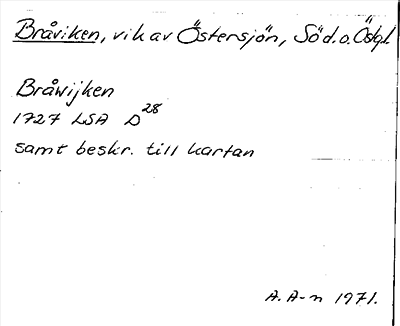 Bråviken, vik av Östersjön, Söd. o. Östgl.
Bråwijken
1727 LSA D28
samt beskr. till kartan
A. A-n 1971.